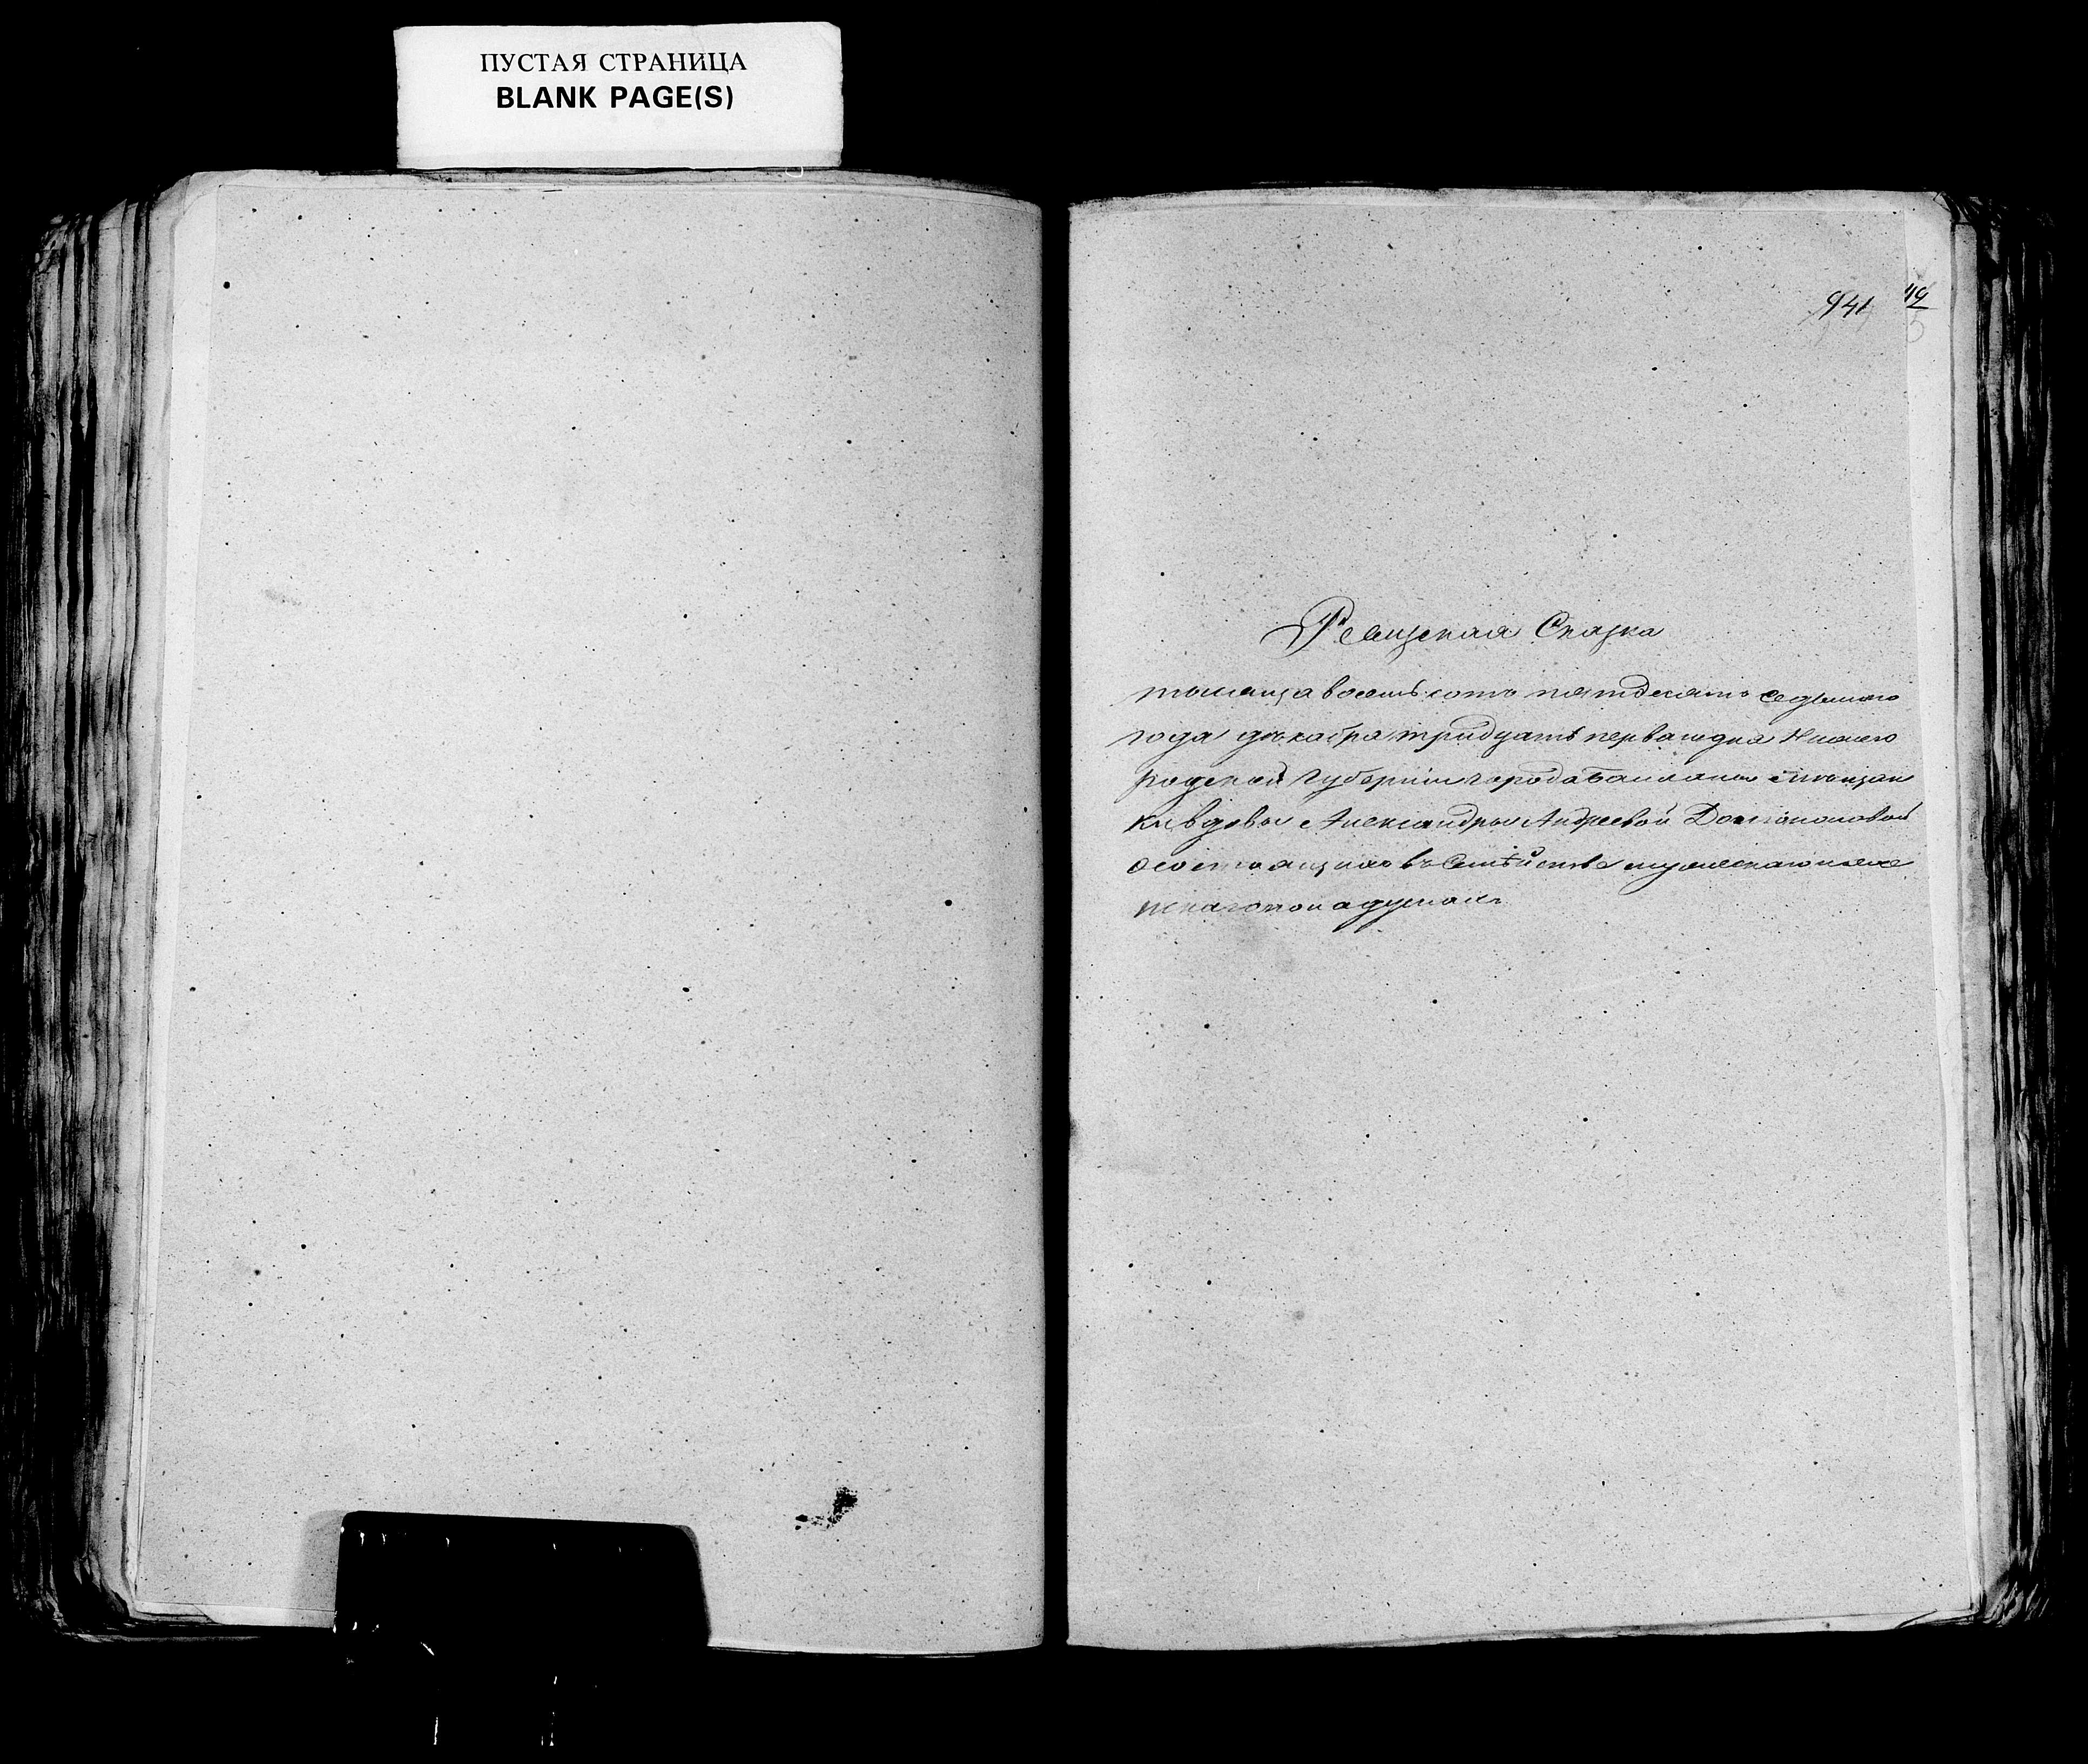 ПУСТАЯ СТРАНИЦА
BLANK PAGE(S)
941
Ревизская Сказка
тысяща восемь сотъ пятдесятъ седьмаго
года декабра тридцать перваго дня Нижего
родской Губерніи города Балахны мещан
ки вдовы Александры Андреевой
о состоящихъ въ Семѣйстве мужескаго и жен
скаго пола душахъ